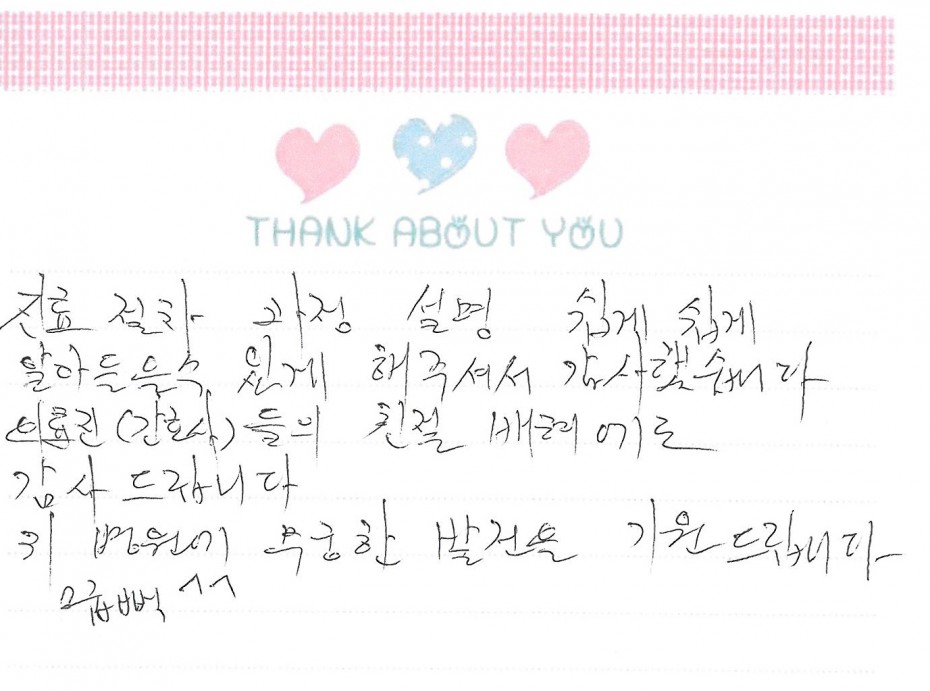 THANK ABOUT YOU
진료 절차 과정 설명 쉽게 쉽게
알아들을수 있게 해주셔서 감사했습니다
의료진(간호사)들의 친절 배려에도
감사 드립니다
귀 병원이 무궁한 발전을 기원드립니다
꾸뻑 ^^